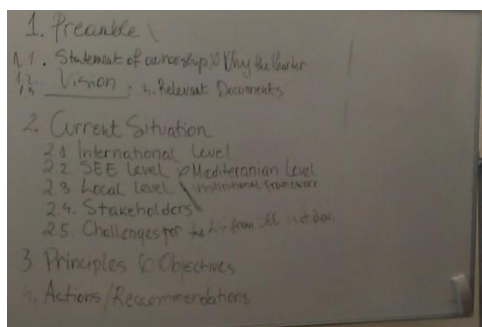 1. Preamble
1.1. Statement of ownership & Why the Charter
1.2. Vision
1.3 4. Relevant Documents
2. Current Situation
2.1 International Level
2.2 SEE Level & Mediteranian Level
2.3 Local level Institutional framework
2.4. Stakeholders
2.5. Challenges per the from SEE
3. Principles & Objectives
Actions/Reccommendations